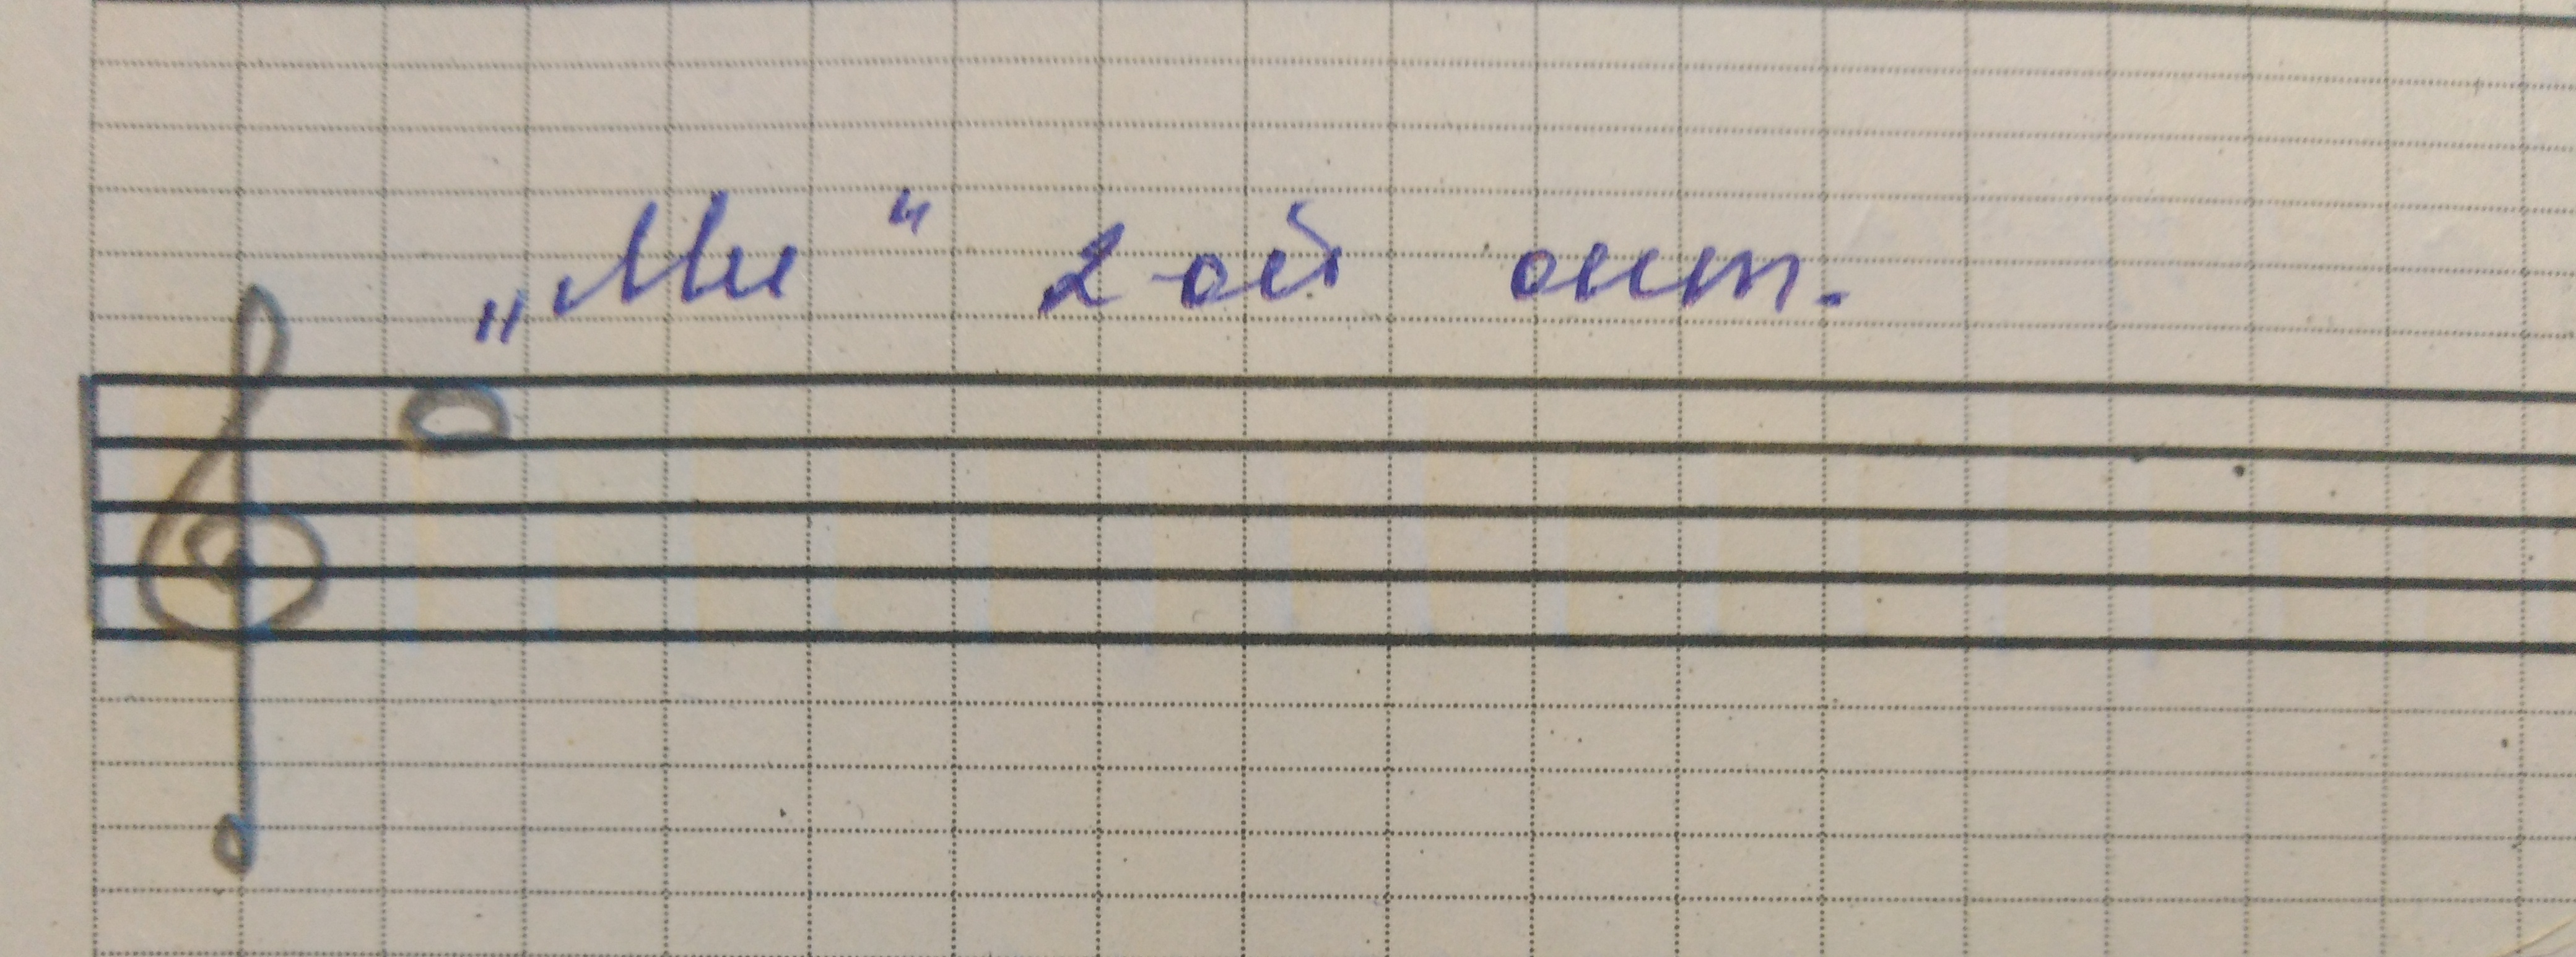 „Ми“ 2-ой окт.